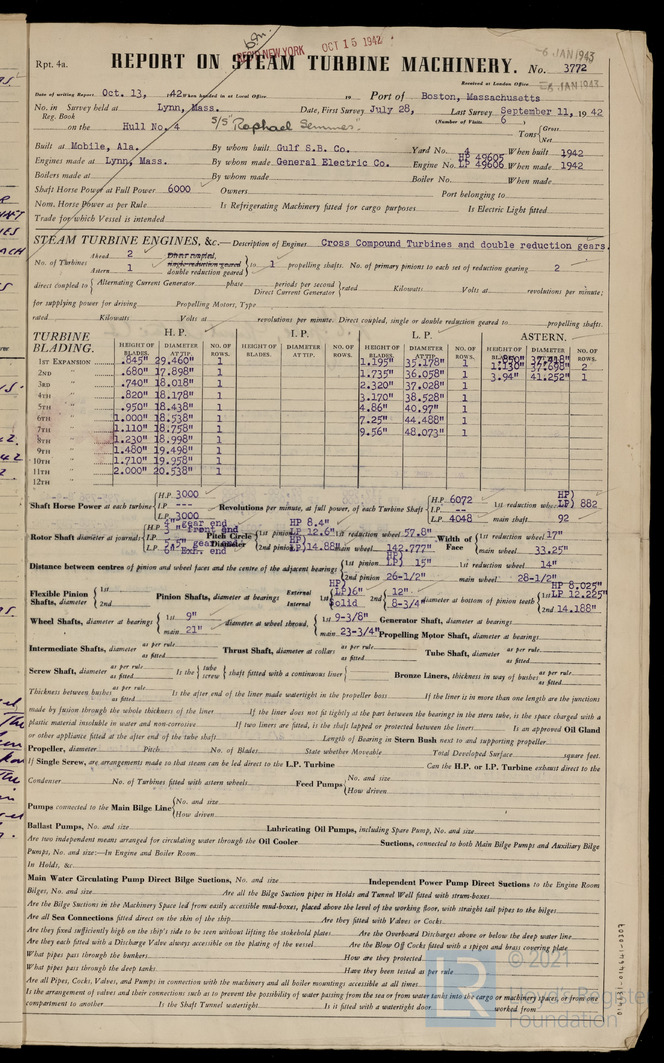 REC'D NEW YORK OCT 15 1942
-6 JAN 1943
Rpt. 4a.
REPORT ON STEAM TURBINE MACHINERY. No. 3772
Received at London Office
JAN 1943
Date of writing Report Oct. 13, 1942 When handed in at Local Office 19 Port of Boston, Massachusetts
No. in Survey held at Lynn, Mass. Date, First Survey July 28, Last Survey September 11, 1942
Reg. Book (Number of Visits 6 )
on the Hull No. 4 S/S "Raphael Semmes" Tons { Gross Net
Built at Mobile, Ala. By whom built Gulf S.B. Co. Yard No. 4 When built 1942
Engines made at Lynn, Mass. By whom made General Electric Co. Engine No. HP 49605 LP 49606 When made 1942
Boilers made at By whom made Boiler No. When made
Shaft Horse Power at Full Power 6000 Owners Port belonging to
Nom. Horse Power as per Rule Is Refrigerating Machinery fitted for cargo purposes Is Electric Light fitted
Trade for which Vessel is intended
STEAM TURBINE ENGINES, &c.—Description of Engines Cross Compound Turbines and double reduction gears.
No. of Turbines Ahead 2 Astern 1 Direct coupled, single reduction geared double reduction geared } to 1 propelling shafts. No. of primary pinions to each set of reduction gearing 2
direct coupled to { Alternating Current Generator phase periods per second Direct Current Generator } rated Kilowatts Volts at revolutions per minute;
for supplying power for driving Propelling Motors, Type
rated Kilowatts Volts at revolutions per minute. Direct coupled, single or double reduction geared to propelling shafts.
TURBINE BLADING. H. P. I. P. L. P. ASTERN.
HEIGHT OF BLADES. DIAMETER AT TIP. NO. OF ROWS. HEIGHT OF BLADES. DIAMETER AT TIP. NO. OF ROWS. HEIGHT OF BLADES. DIAMETER AT TIP. NO. OF ROWS. HEIGHT OF BLADES. DIAMETER AT TIP. NO. OF ROWS.
1ST EXPANSION .845" 29.460" 1 1.195" 35.178" 1 .850" 37.418"
2ND .680" 17.898" 1 1.735" 36.058" 1 1.130" 37.698" 2
3RD .740" 18.018" 1 2.320" 37.028" 1 3.94" 41.252" 1
4TH .820" 18.178" 1 3.170" 38.528" 1
5TH .950" 18.438" 1 4.86" 40.97" 1
6TH 1.000" 18.538" 1 7.25" 44.488" 1
7TH 1.110" 18.758" 1 9.56" 48.073" 1
8TH 1.230" 18.998" 1
9TH 1.480" 19.498" 1
10TH 1.710" 19.958" 1
11TH 2.000" 20.538" 1
12TH
Shaft Horse Power at each turbine { H.P. 3000 I.P. --- L.P. 3000 Revolutions per minute, at full power, of each Turbine Shaft { H.P. 6072 I.P. -- L.P. 4048 1st reduction wheel HP) LP) 882 main shaft 92
Rotor Shaft diameter at journals { H.P. 4" gear end 3" front end I.P. L.P. 5.5" gear end 6" Exh. end Pitch Circle Diameter { 1st pinion HP 8.4" LP 12.6" 1st reduction wheel 57.8" 2nd pinion HP) LP) 14.88" main wheel 142.777" Width of Face { 1st reduction wheel 17" main wheel 33.25"
Distance between centres of pinion and wheel faces and the centre of the adjacent bearings { 1st pinion HP) LP) 15" 2nd pinion 26-1/2" 1st reduction wheel 14" main wheel 28-1/2"
Flexible Pinion Shafts, diameter { 1st 2nd Pinion Shafts, diameter at bearings External Internal 1st HP) LP) 6" Solid 2nd 12" 8-3/4" diameter at bottom of pinion teeth { 1st HP 8.025" LP 12.225" 2nd 14.188"
Wheel Shafts, diameter at bearings { 1st 9" main 21" diameter at wheel shroud, { 1st 9-3/8" main 23-3/4" Generator Shaft, diameter at bearings Propelling Motor Shaft, diameter at bearings
Intermediate Shafts, diameter as per rule as fitted Thrust Shaft, diameter at collars as per rule as fitted Tube Shaft, diameter as per rule as fitted
Screw Shaft, diameter as per rule as fitted Is the { tube screw } shaft fitted with a continuous liner { Bronze Liners, thickness in way of bushes as per rule as fitted
Thickness between bushes as per rule as fitted Is the after end of the liner made watertight in the propeller boss If the liner is in more than one length are the junctions
made by fusion through the whole thickness of the liner If the liner does not fit tightly at the part between the bearings in the stern tube, is the space charged with a
plastic material insoluble in water and non-corrosive If two liners are fitted, is the shaft lapped or protected between the liners Is an approved Oil Gland
or other appliance fitted at the after end of the tube shaft Length of Bearing in Stern Bush next to and supporting propeller
Propeller, diameter Pitch No. of Blades State whether Moveable Total Developed Surface square feet.
If Single Screw, are arrangements made so that steam can be led direct to the L.P. Turbine Can the H.P. or I.P. Turbine exhaust direct to the
Condenser No. of Turbines fitted with astern wheels Feed Pumps { No. and size How driven
Pumps connected to the Main Bilge Line { No. and size How driven
Ballast Pumps, No. and size Lubricating Oil Pumps, including Spare Pump, No. and size
Are two independent means arranged for circulating water through the Oil Cooler Suctions, connected to both Main Bilge Pumps and Auxiliary Bilge
Pumps, No. and size:—In Engine and Boiler Room
In Holds, &c.
Main Water Circulating Pump Direct Bilge Suctions, No. and size Independent Power Pump Direct Suctions to the Engine Room
Bilges, No. and size Are all the Bilge Suction pipes in Holds and Tunnel Well fitted with strum-boxes
Are the Bilge Suctions in the Machinery Space led from easily accessible mud-boxes, placed above the level of the working floor, with straight tail pipes to the bilges
Are all Sea Connections fitted direct on the skin of the ship Are they fitted with Valves or Cocks
Are they fixed sufficiently high on the ship's side to be seen without lifting the stokehold plates Are the Overboard Discharges above or below the deep water line
Are they each fitted with a Discharge Valve always accessible on the plating of the vessel Are the Blow Off Cocks fitted with a spigot and brass covering plate
What pipes pass through the bunkers How are they protected
What pipes pass through the deep tanks Have they been tested as per rule
Are all Pipes, Cocks, Valves, and Pumps in connection with the machinery and all boiler mountings accessible at all times
Is the arrangement of valves and their connections such as to prevent the possibility of water passing from the sea or from water tanks into the cargo or machinery spaces, or from one
compartment to another Is the Shaft Tunnel watertight Is it fitted with a watertight door worked from
© 2021
Lloyd's Register
Foundation